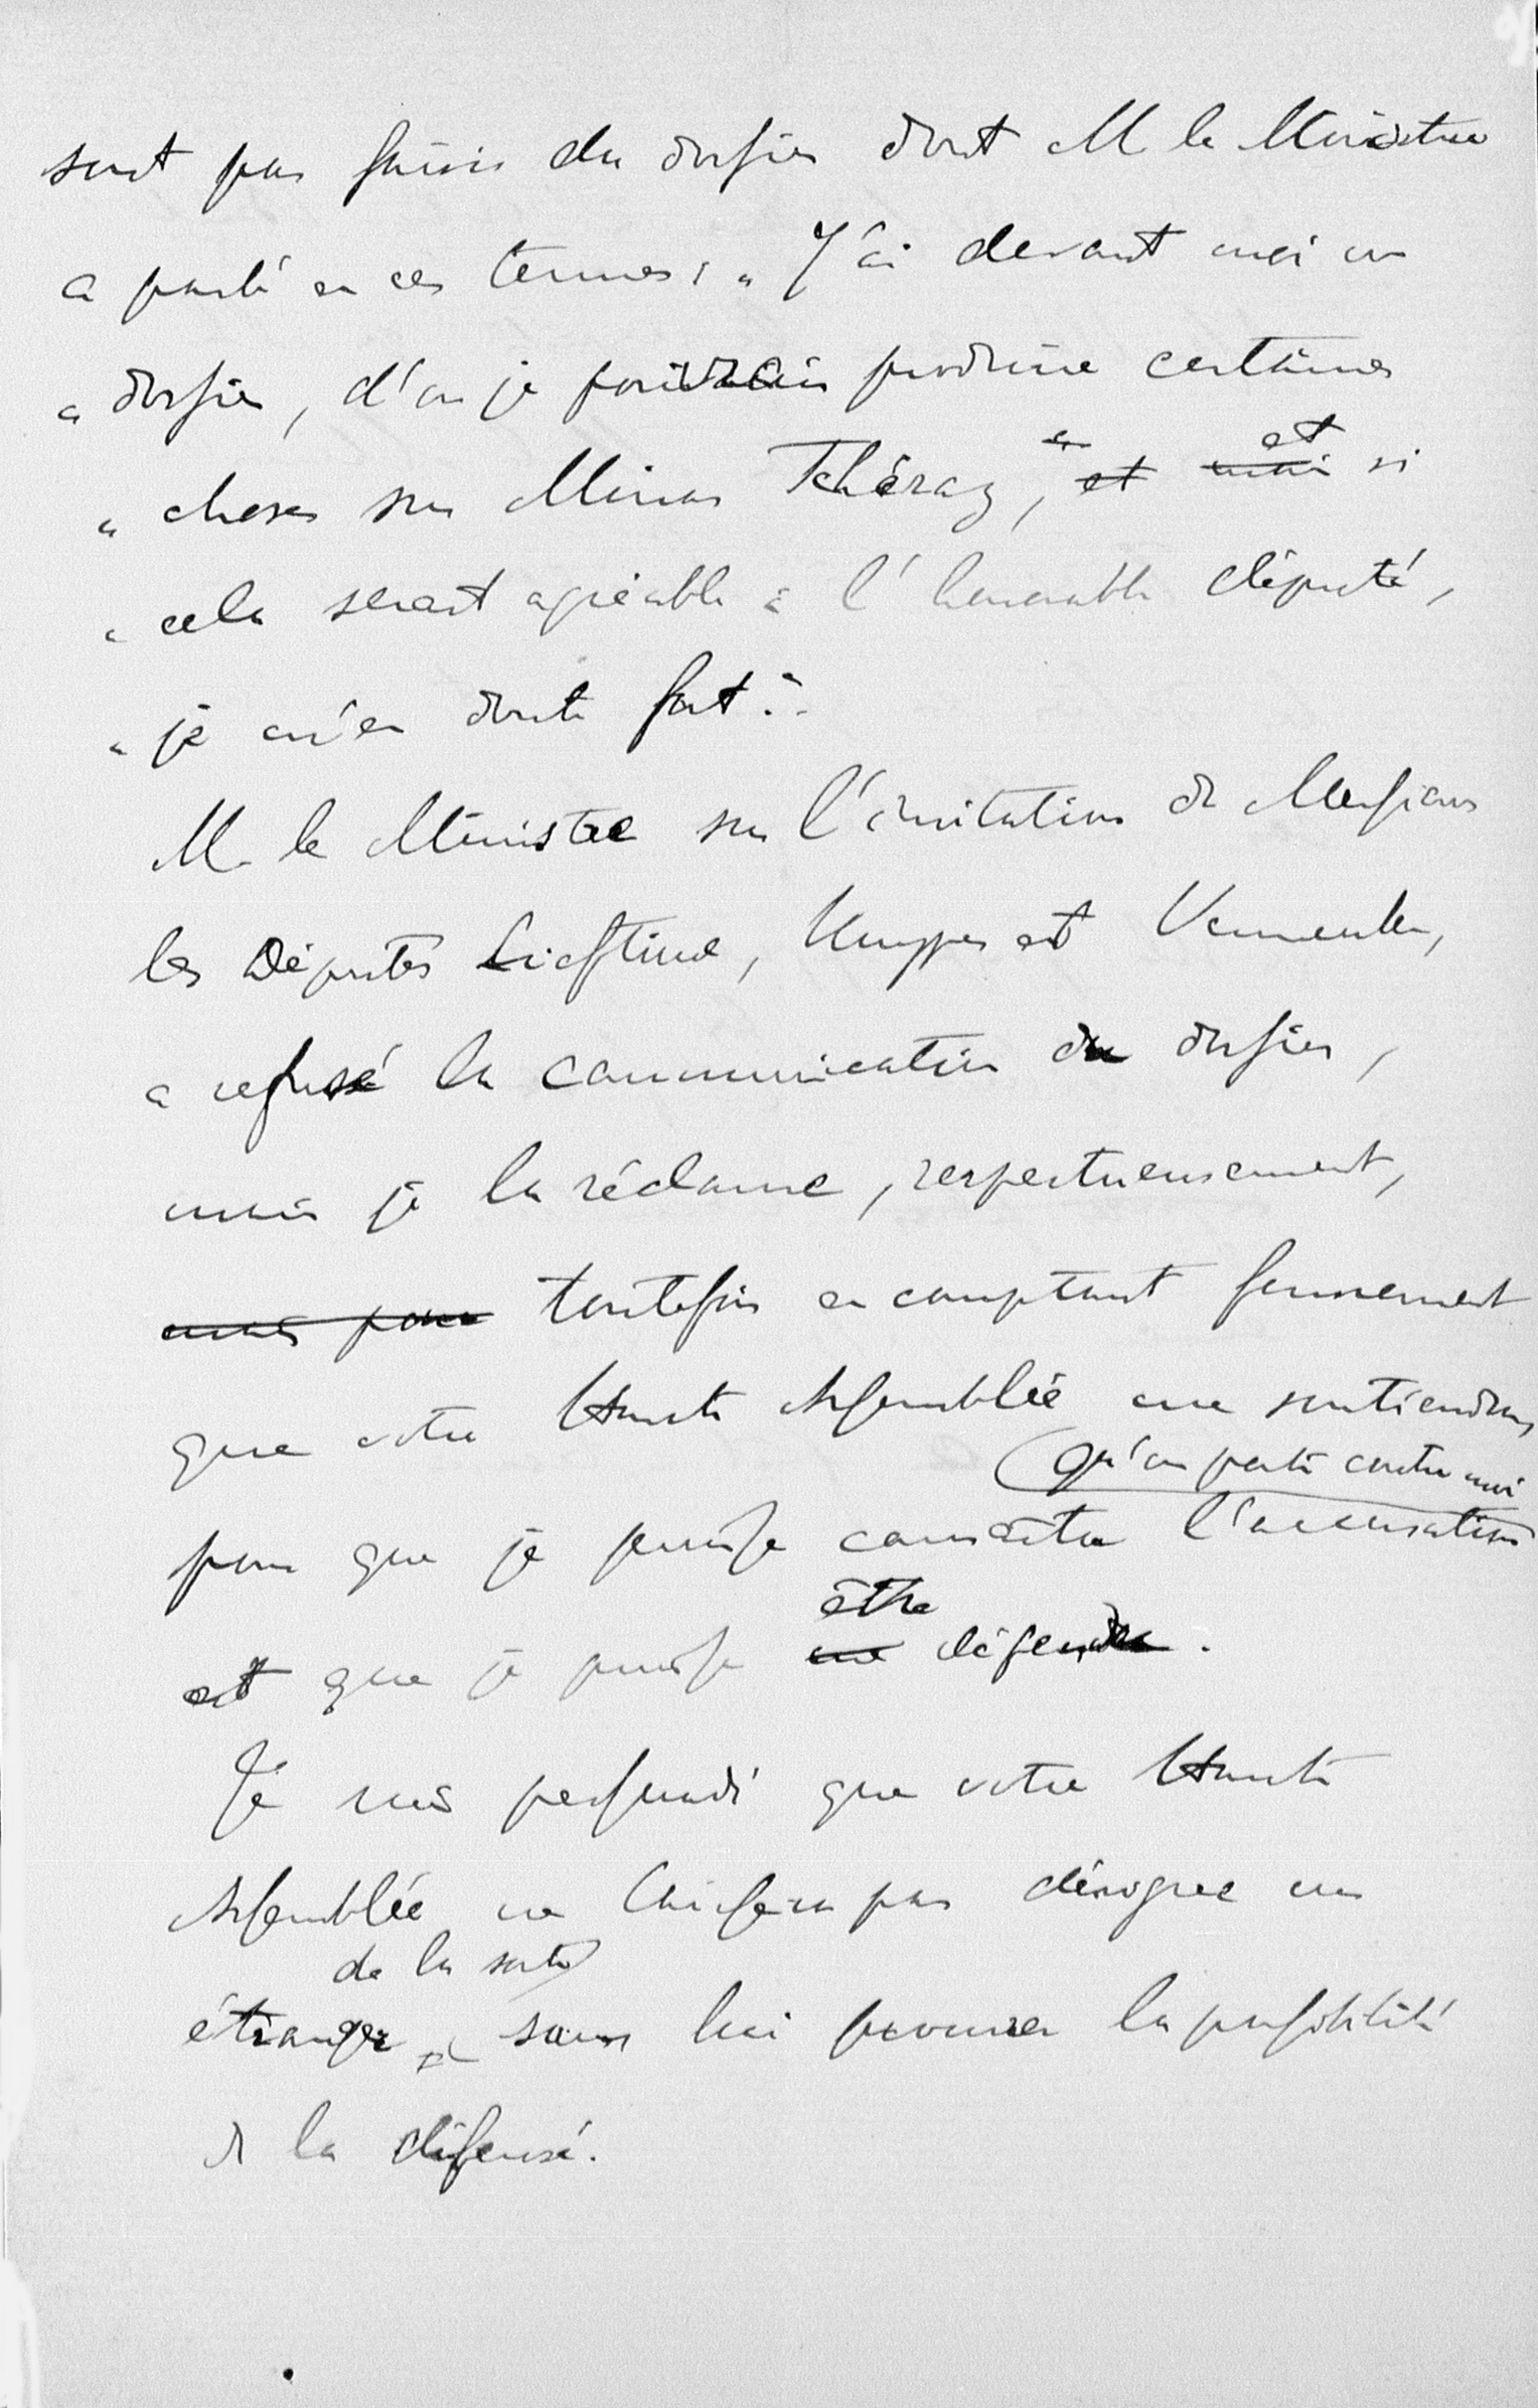 sont pas saisis du dossier dont M le Ministre
a parlé en ces termes : „ J'ai devant moi un
„ dossier, d'où je pourrais produire certaines
„ choses sur Minas Tchéraz, et mais et si
„ cela serait agréable à l'honorable député,
„ je m'en doute fort."
M. le Ministre sur l'invitation de Messieurs
les Députés Lieftinck, Kuyper et
a refusé la communication du dossier,
mais je la réclame, respectueusement,
mais pour toutefois en comptant fermement
que votre Haute Assemblée me soutiendra,
qu'on porte contre moi
pour que je puisse connaître l'accusation
être
et que je puisse me défendre.
Je suis persuadé que votre Haute
Assemblée ne laissera pas dénigrer un
de la sorte
étranger sans lui procurer la possibilité
de la défense.